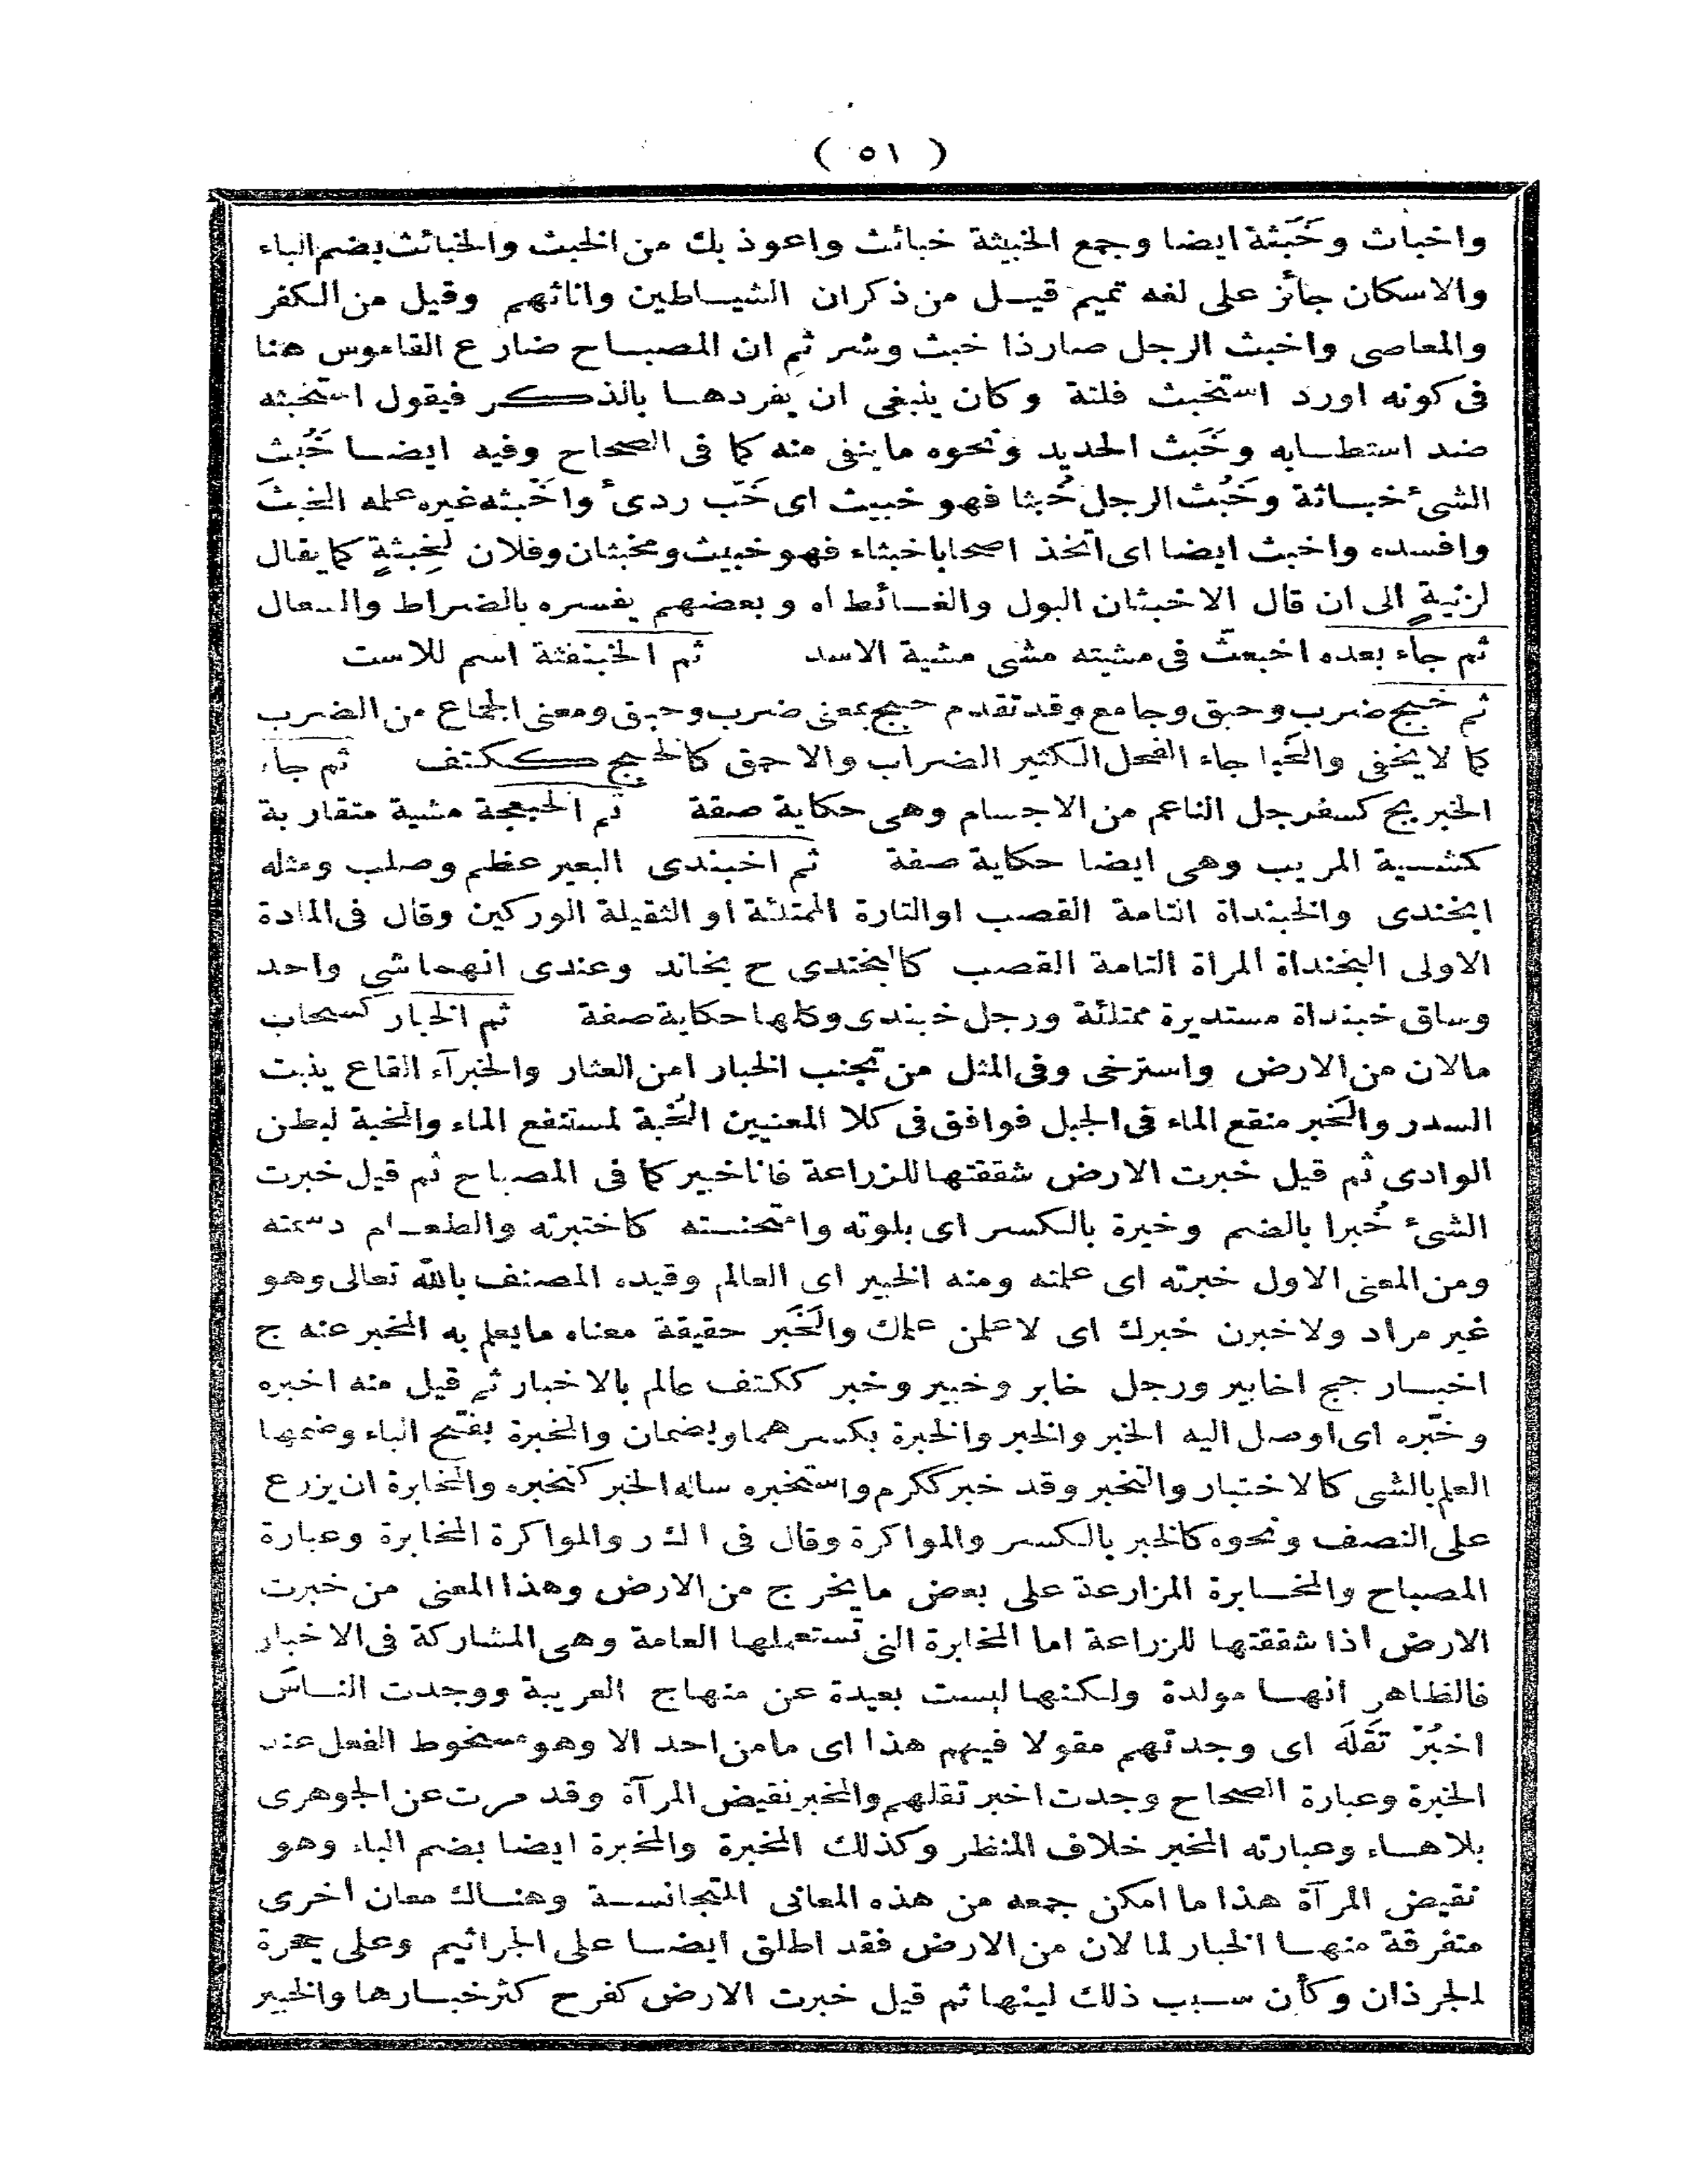 ( ٥١ )
واخباث وخَبَثة ايضا وجمع الخبيثة خبائث واعوذ بك من الخبث والخبائث بضم الباء
والاسكان جائز على لغه تميم قيــل من ذكران الشيــاطين واناثهم وقيل من الكفر
والمعاصى واخبث الرجل صارذا خبث وشر ثم ان المصبــاح ضارع القاموس هنا
فى كونه اورد استخبث فلتة وكان ينبغى ان يفردهــا بالذكر فيقول استخبثه
ضد استطــابه وخَبَث الحديد ونحوه ماينفى منه كما فى الصحاح وفيه ايضــا خَبُث
الشئ خبــاثة وخَبُث الرجل خُبثا فهو خبيث اى خَبّ ردىء واخبثه غيره علمه الخبثَ
وافسده واخبث ايضا اى اتخذ اصحابا خبثاء فهو خبيث ومخبثان وفلان لخِبثةٍ كما يقال
لزنيةٍ الى ان قال الاخبثان البول والغــائط اه وبعضهم يفسره بالضراط والسعال
ثم جاء بعده اخبعثّ فى مشيته مشى مشية الاسد ثم الخبنفثة اسم للاست
ثم خبج ضرب وحبق وجامع وقد تقدم حبج بمعنى ضرب وحبق ومعنى الجماع من الضرب
كما لا يخفى والخَبا جاء الفحل الكثير الضراب والاحمق كالخبج ككتف ثم جاء
الخبربج كسفرجل الناعم من الاجسام وهى حكاية صفة ثم الخبعجة مشية متقاربة
كمشسية المريب وهى ايضا حكاية صفة ثم اخبندى البعير عظم وصلب ومثله
ابخندى والخبنداة التامة القصب اوالتارة الممتلئة او الثقيلة الوركين وقال فى المادة
الاولى البخنداة المراة التامة القصب كالبخندى ح بخاند وعندى انهما شى واحد
وساق خبنداة مستديرة ممتلئة ورجل خبندى وكلها حكاية صفة ثم الخبار كسحاب
مالان من الارض واسترخى وفى المثل من تجنب الخبار امن العثار والخبرآء القاع ينبت
السدر والخَبر منقع الماء فى الجبل فوافق فى كلا المعنيين الخُبة لمستنقع الماء والخبة لبطن
الوادى ثم قيل خبرت الارض شققتها للزراعة فانا خبير كما فى المصباح ثم قيل خبرت
الشئ خُبرا بالضم وخبرة بالكسر اى بلوته وامتحنــته كاختبرته والطعــام دسمته
ومن المعنى الاول خبرته اى علمته ومنه الخبير اى العالم وقيده المصنف بالله تعالى وهو
غير مراد ولاخبرن خبرك اى لاعلمن علمك والخَبَر حقيقة معناه مايعلم به المخبر عنه ج
اخبــار جج اخابير ورجل خابر وخبير وخبر ككتف عالم بالاخبار ثم قيل منه اخبره
وخبّره اى اوصل اليه الخبر والخبر والخبرة بكسرهما وبضمان والمخبرة بفتح الباء وضمها
العلم بالشى كالاختبار والتخبر وقد خبر ككرم واستخبره ساله الخبر كتخبره والمخابرة ان يزرع
على النصف ونحوه كالخبر بالكسر والمواكرة وقال فى اكر والمواكرة المخابرة وعبارة
المصباح والمخــابرة المزارعة على بعض مايخرج من الارض وهذا المعنى من خبرت
الارض اذا شققتها للزراعة اما المخابرة التى تستعملها العامة وهى المشاركة فى الاخبار
فالظاهر انهــا مولدة ولكنها ليست بعيدة عن منهاج العربية ووجدت النــاسَ
اخبُرْ تَقلَه اى وجدتهم مقولا فيهم هذا اى مامن احد الا وهو مسخوط الفعل عند
الخبرة وعبارة الصحاح وجدت اخبر تقلهم والمخبر نقيض المرآة وقد مرت عن الجوهرى
بلا هــاء وعبارته المخبر خلاف المنظر وكذلك المخبرة والمخبرة ايضا بضم الباء وهو
نقيض المرآة هذا ما امكن جمعه من هذه المعانى المتجانســة وهنــاك معان اخرى
متفرقة منهــا الخبار لما لان من الارض فقد اطلق ايضــا على الجراثيم وعلى جحرة
الجرذان وكأن ســبب ذلك لينها ثم قيل خبرت الارض كفرح كثر خبــارها والخبير